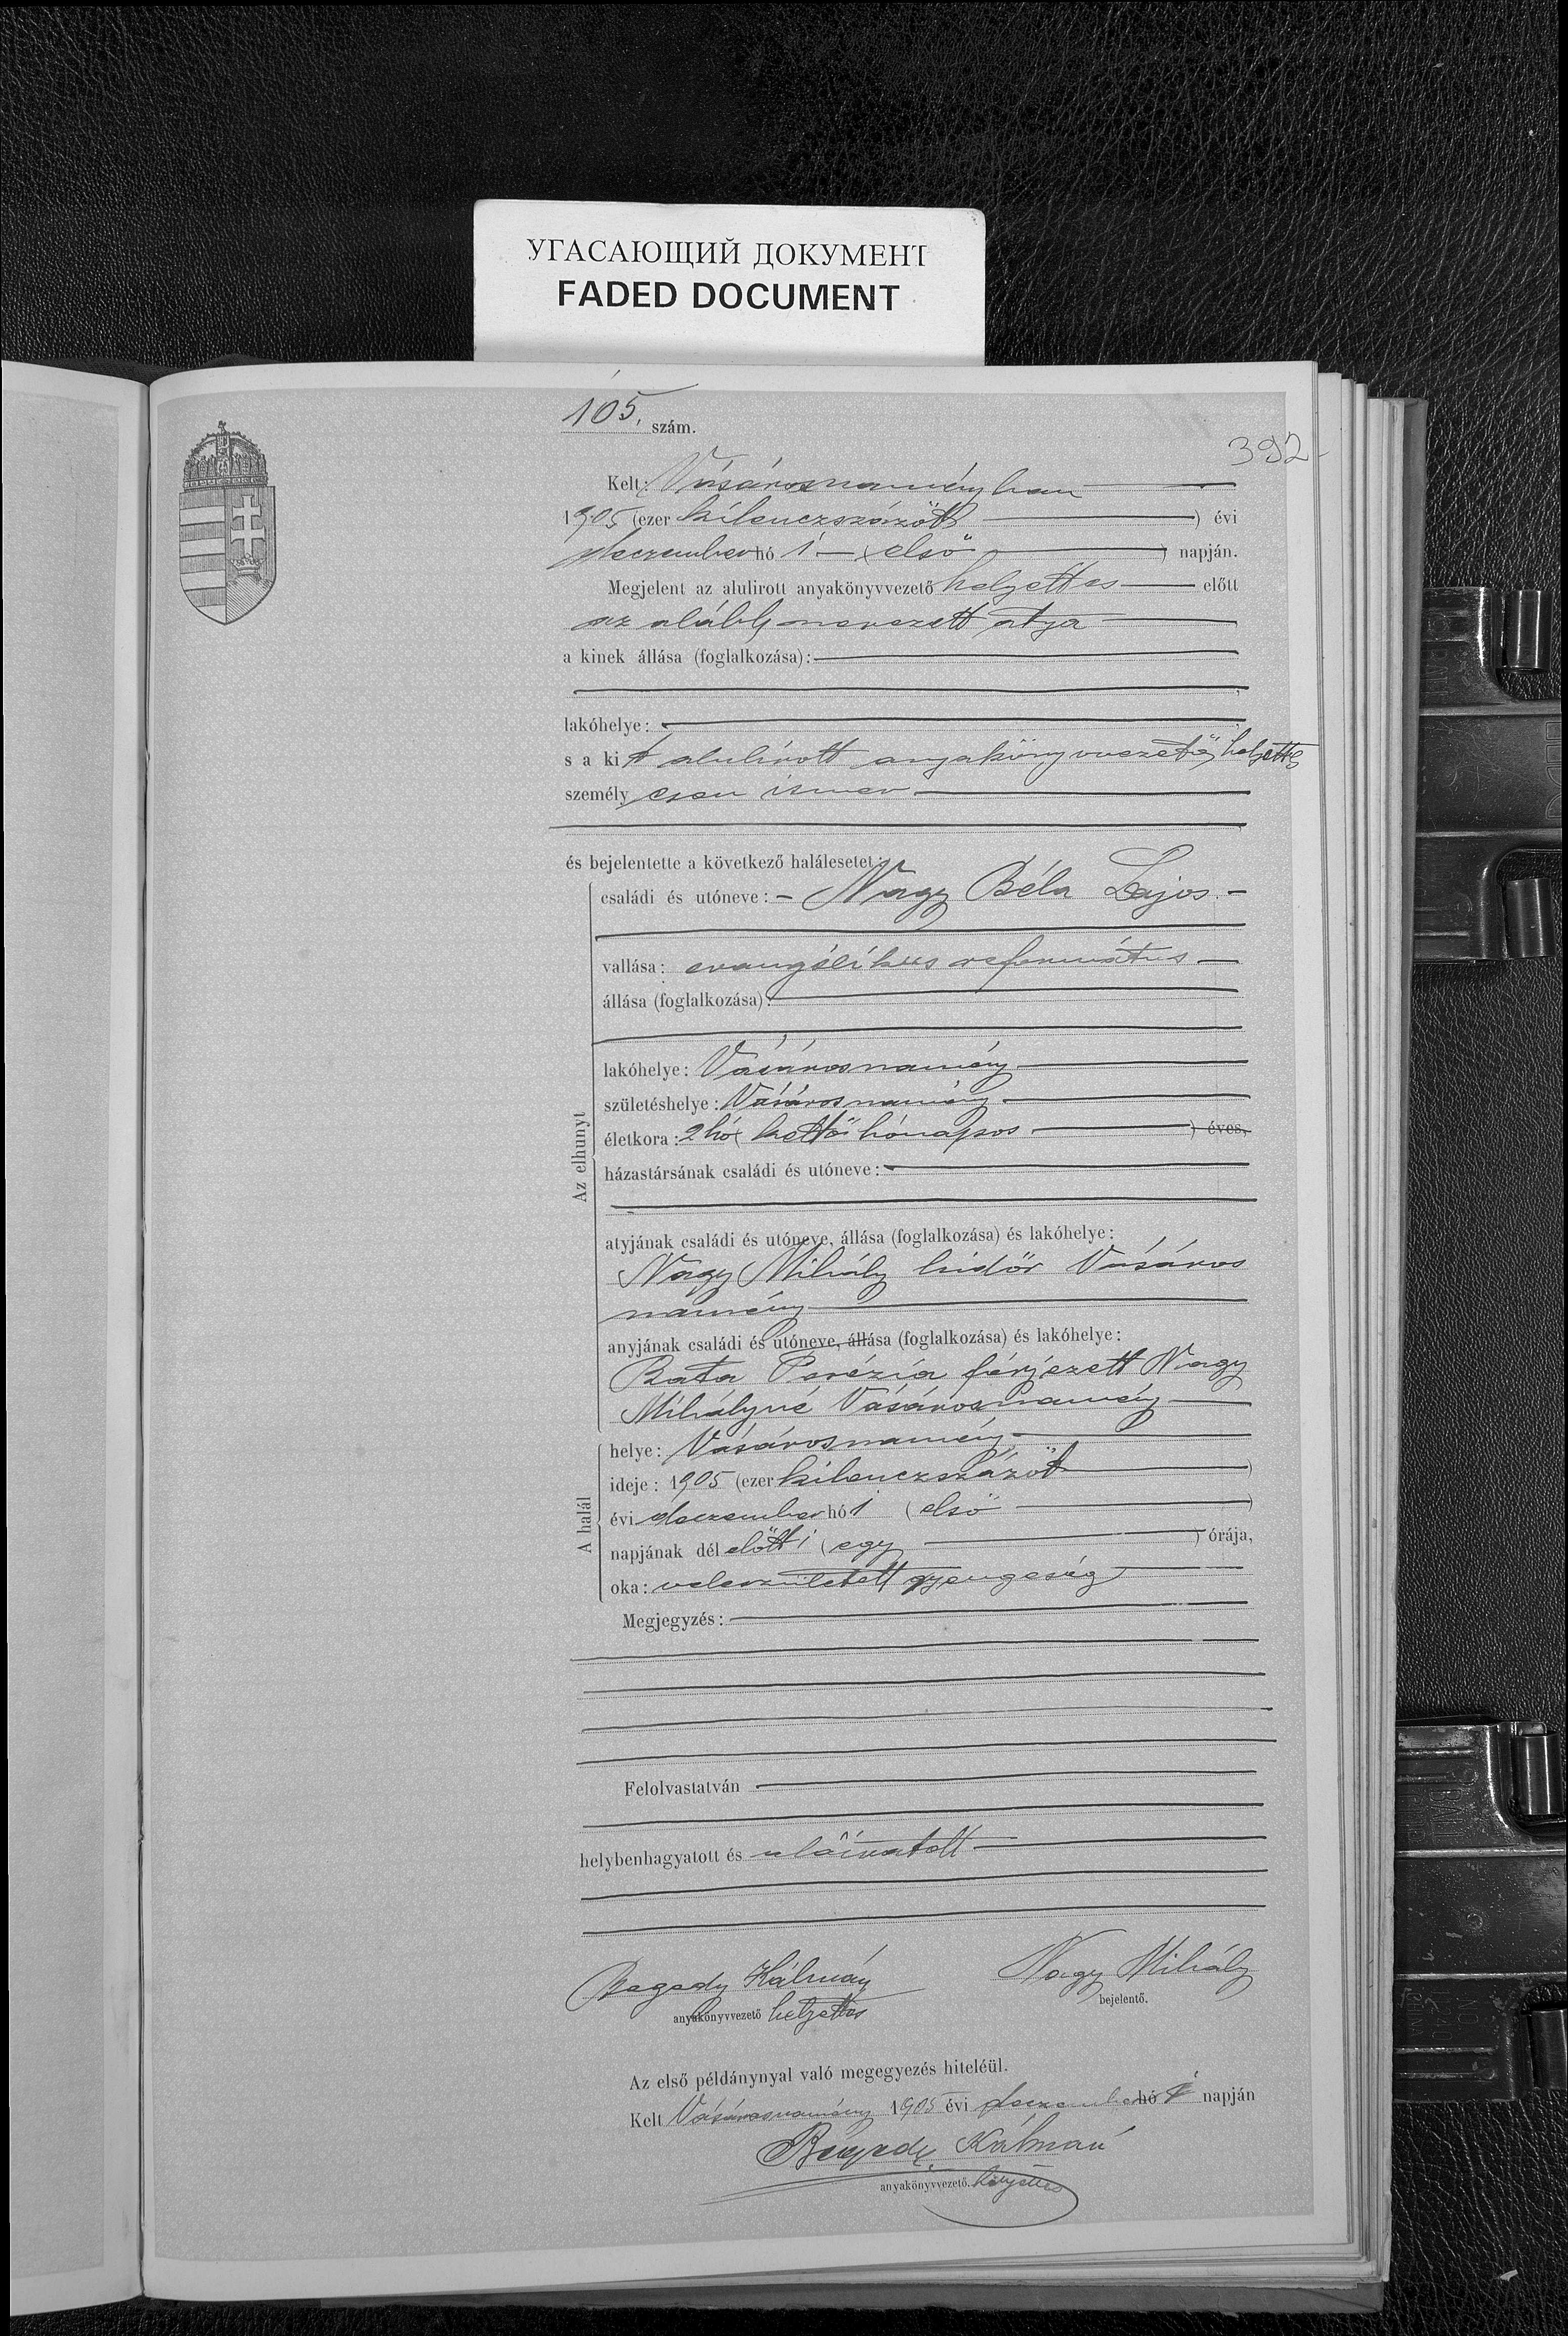 УГАСАЮЩИЙ ДОКУМЕНТ
FADED DOCUMENT
105. szám.
392
Kelt: Vásárosnaményban
1905 (ezer kilenczszázöt) évi
deczember hó 1 (első) napján.
Megjelent az alulirott anyakönyvvezető helyettes előtt
az alább nevezett atya
a kinek állása (foglalkozása):
lakóhelye:
s a kit alulirott anyakönyvvezető helyettes
személyesen ismer
és bejelentette a következő halálesetet:
Az elhunyt
családi és utóneve: - Nagy Béla Lajos -
vallása: evangélikus református
állása (foglalkozása):
lakóhelye: Vásárosnamény
születéshelye: Vásárosnamény
életkora: 2 hó (kettő hónapos) éves,
házastársának családi és utóneve:
atyjának családi és utóneve, állása (foglalkozása) és lakóhelye:
Nagy Mihály hidőr Vásáros
namény
anyjának családi és utóneve, állása (foglalkozása) és lakóhelye:
Bata Terézia férjezett Nagy
Mihályné Vásárosnamény
A halál
helye: Vásárosnamény
ideje: 1905 (ezer kilenczszázöt)
évi deczember hó 1 (első)
napjának dél előtt 1 (egy) órája,
oka: veleszületett gyengeség
Megjegyzés:
Felolvastatván
helybenhagyatott és aláiratott
Kálmán
Nagy Mihály
anyakönyvvezető helyettes
bejelentő.
Az első példánynyal való megegyezés hiteléül.
Kelt Vásárosnamény 1905 évi deczember hó 1 napján
Kálmán
anyakönyvvezető. helyettes